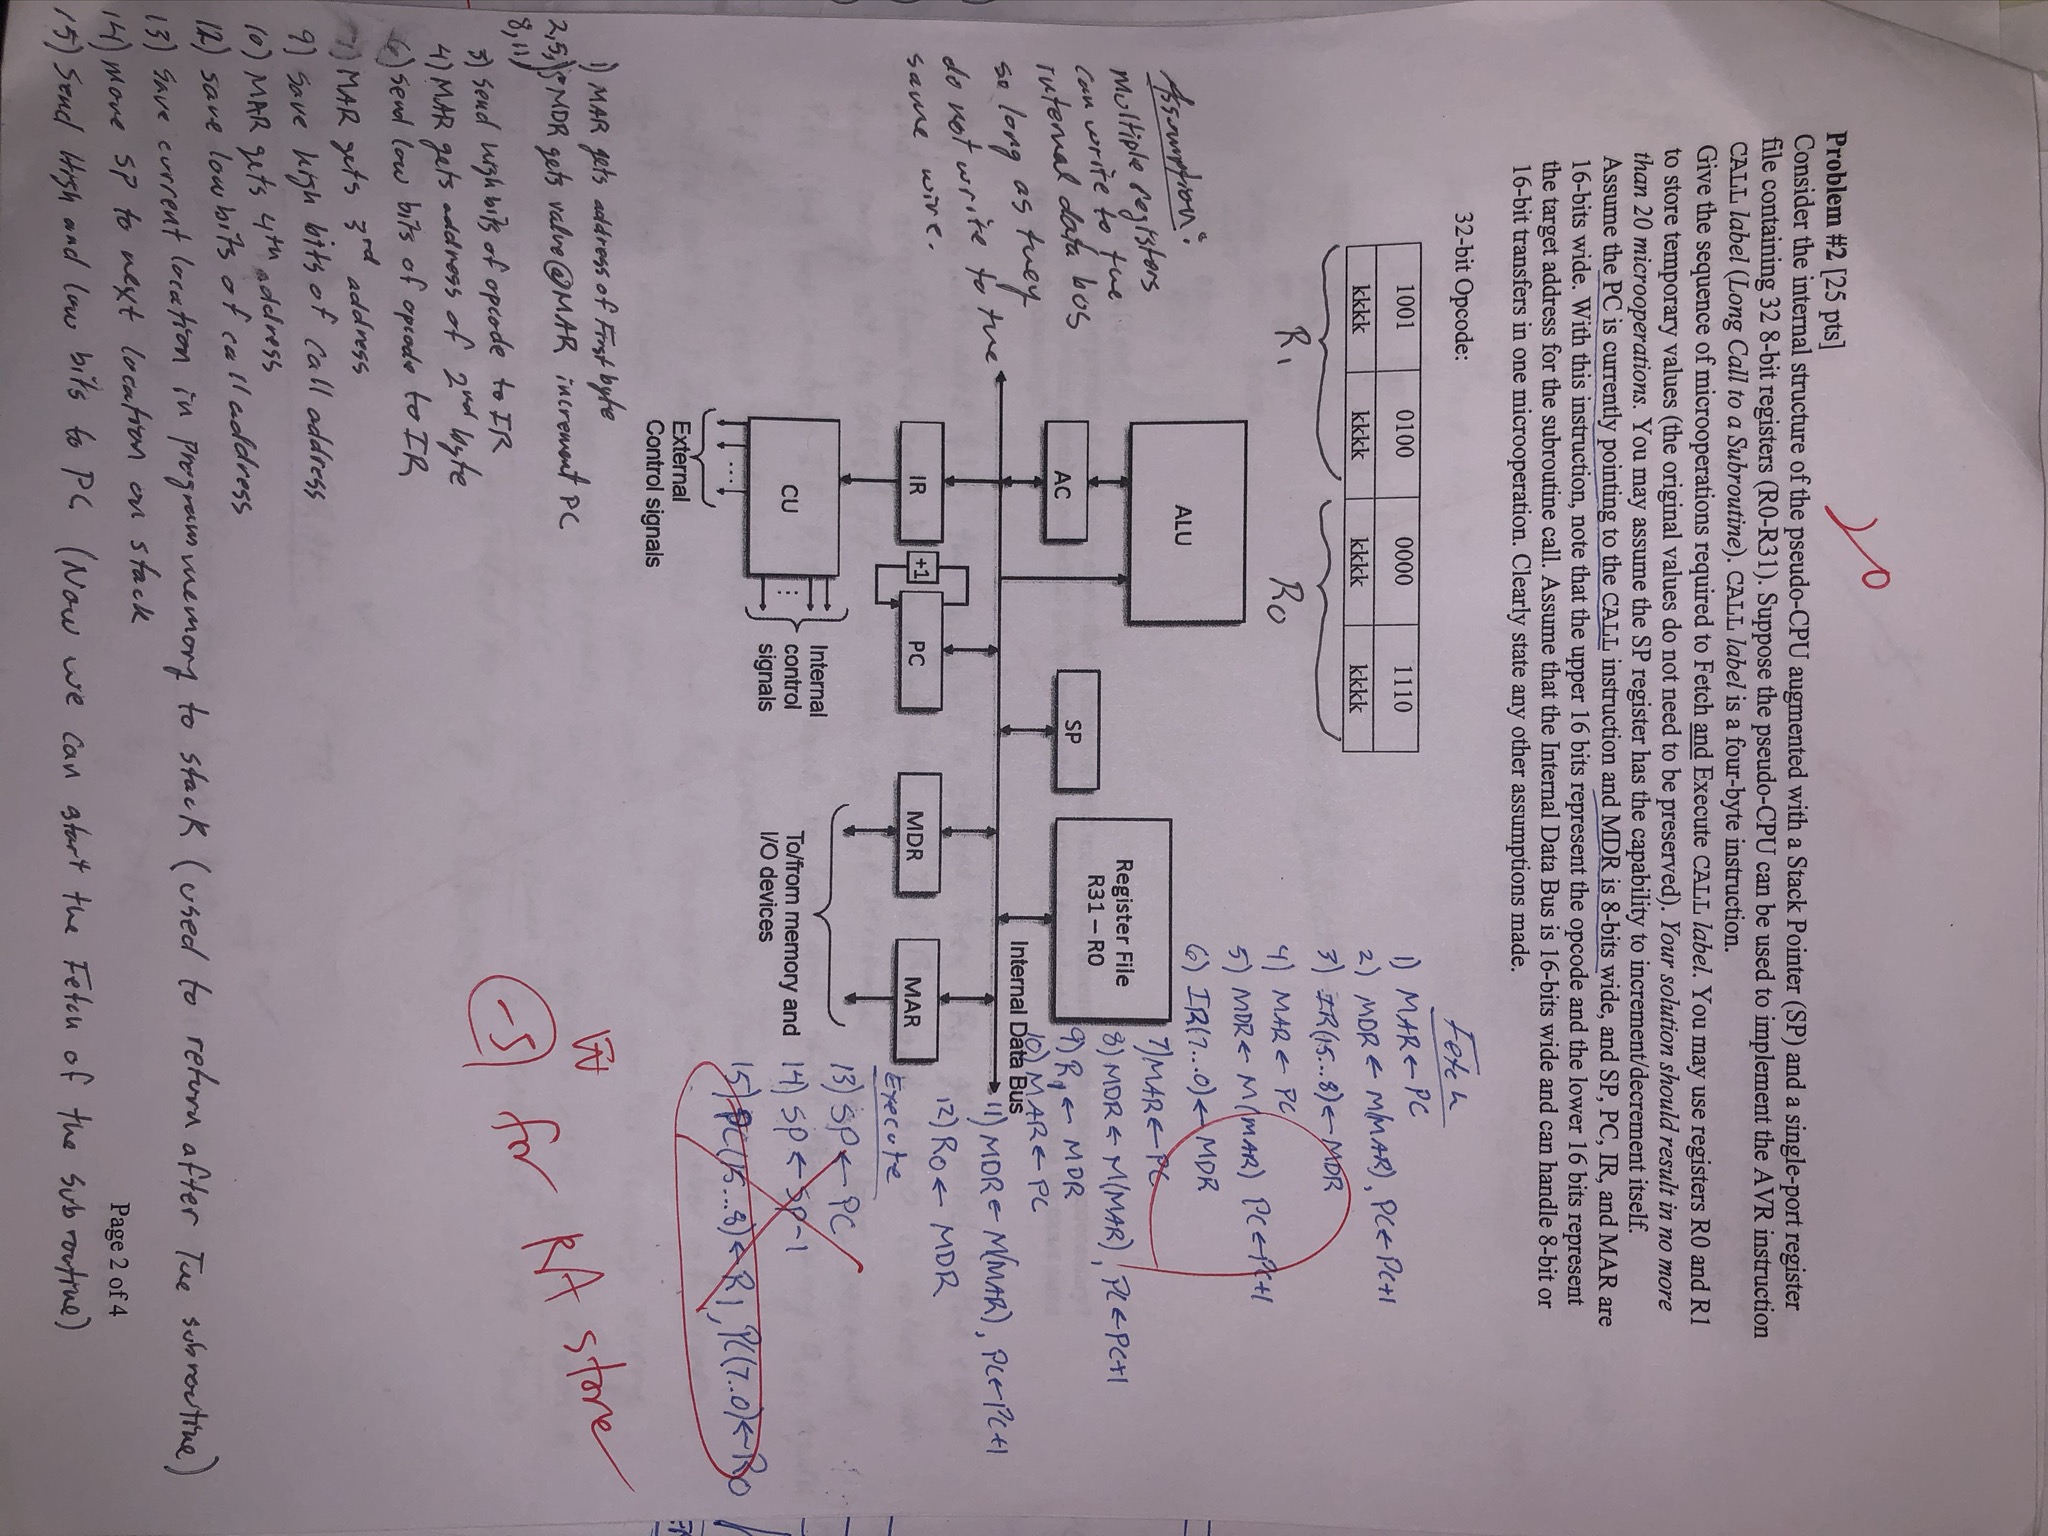 20
Problem #2 [25 pts]
Consider the internal structure of the pseudo-CPU augmented with a Stack Pointer (SP) and a single-port register
file containing 32 8-bit registers (R0-R31). Suppose the pseudo-CPU can be used to implement the AVR instruction
CALL label (Long Call to a Subroutine). CALL label is a four-byte instruction.
Give the sequence of microoperations required to Fetch and Execute CALL label. You may use registers R0 and R1
to store temporary values (the original values do not need to be preserved). Your solution should result in no more
than 20 microoperations. You may assume the SP register has the capability to increment/decrement itself.
Assume the PC is currently pointing to the CALL instruction and MDR is 8-bits wide, and SP, PC, IR, and MAR are
16-bits wide. With this instruction, note that the upper 16 bits represent the opcode and the lower 16 bits represent
the target address for the subroutine call. Assume that the Internal Data Bus is 16-bits wide and can handle 8-bit or
16-bit transfers in one microoperation. Clearly state any other assumptions made.
32-bit Opcode:
1001 0100 0000 1110
kkkk kkkk kkkk kkkk
R1 R0
Assumption:
Multiple registers
can write to the
internal data bus
so long as they
do not write to the
same wire.
ALU
AC
SP
Register File
R31 – R0
Internal Data Bus
IR
+1
PC
MDR
MAR
CU
...
External
Control signals
...
Internal
control
signals
To/from memory and
I/O devices
Fetch
1) MAR ← PC
2) MDR ← M(MAR), PC ← PC+1
3) IR(15...8) ← MDR
4) MAR ← PC
5) MDR ← M(MAR) PC ← PC+1
6) IR(7...0) ← MDR
7) MAR ← PC
8) MDR ← M(MAR), PC ← PC+1
9) R1 ← MDR
10) MAR ← PC
11) MDR ← M(MAR), PC ← PC+1
12) R0 ← MDR
Execute
13) SP ← PC
14) SP ← SP-1
15) PC(15...8) ← R1, PC(7..0) ← R0
-5 for RA store
1) MAR gets address of first byte
2,5, 8,11) MDR gets value @ MAR increment PC
3) Send high bits of opcode to IR
4) MAR gets address of 2nd byte
6) Send low bits of opcode to IR
7) MAR gets 3rd address
9) Save high bits of call address
10) MAR gets 4th address
12) save low bits of call address
13) Save current location in program memory to stack (used to return after The subroutine)
14) move SP to next location on stack
15) Send High and low bits to PC (Now we can start the Fetch of the subroutine)
Page 2 of 4